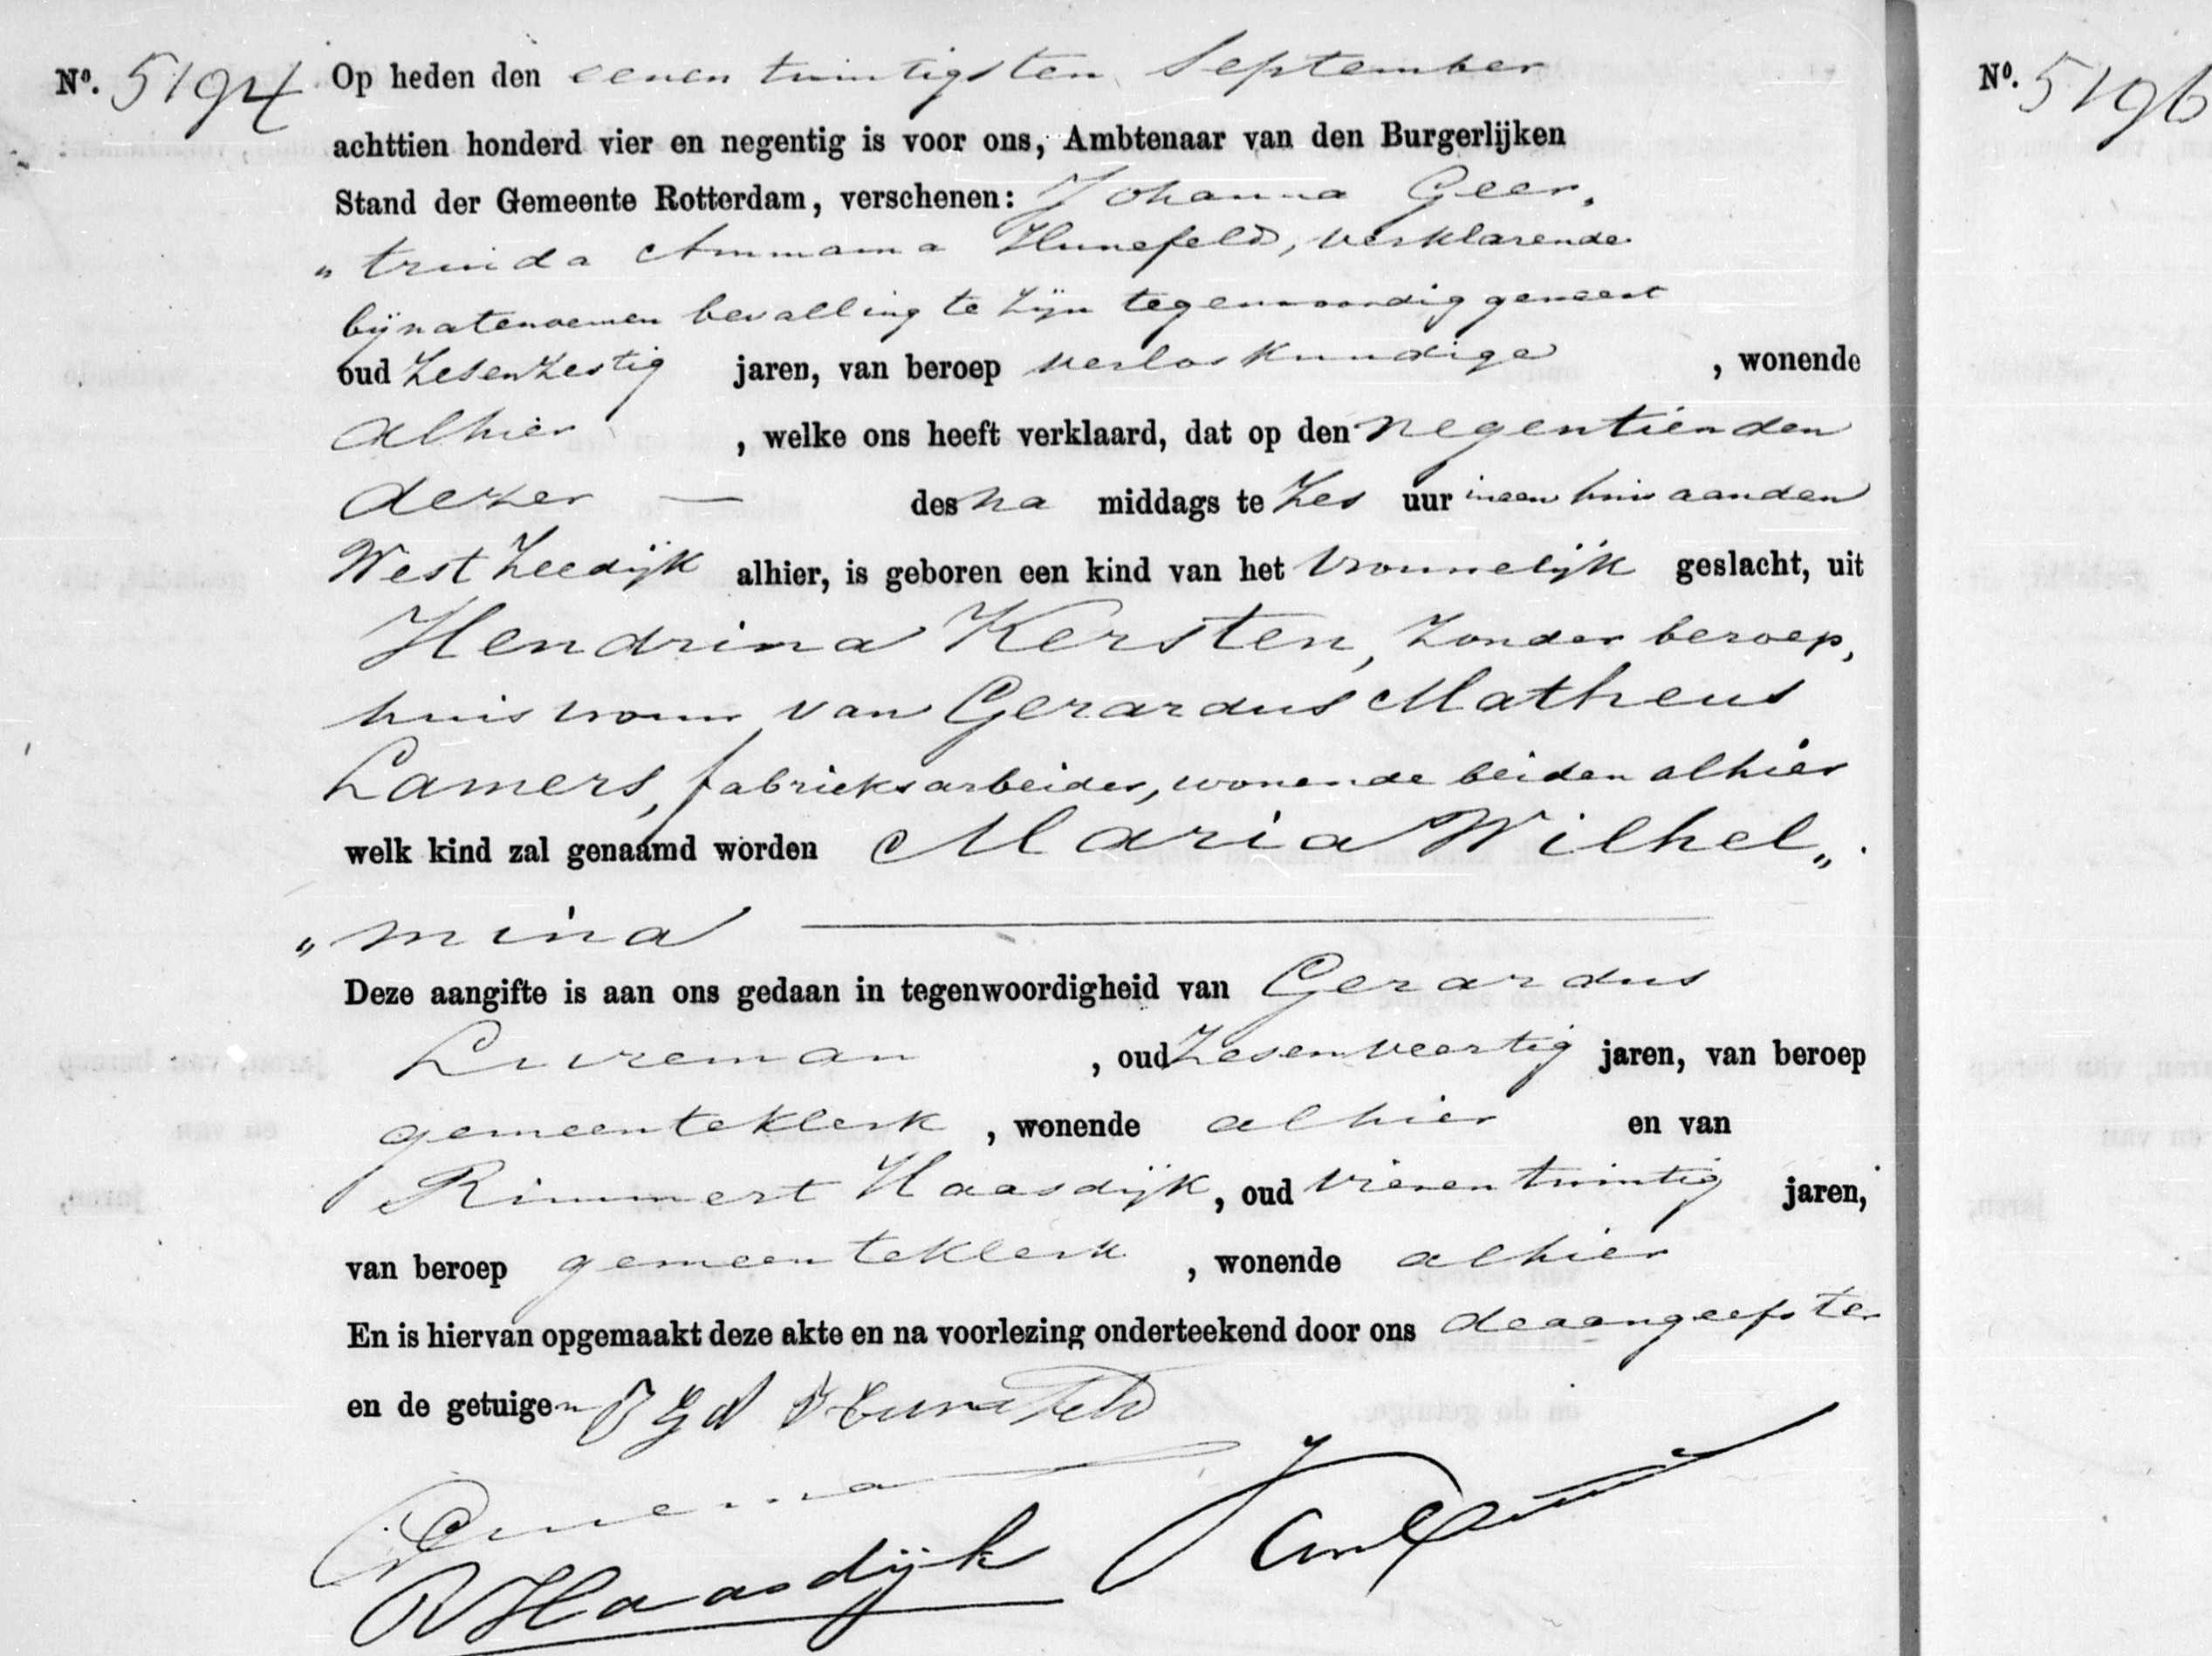 Nº. 5194 Op heden den eenen twintigsten September
achttien honderd vier en negentig is voor ons, Ambtenaar van den Burgerlijken
Stand der Gemeente Rotterdam, verschenen: Johanna Geer„
„trinda Ammama Hunefeld, verklarende
bijnatenoemen bevalling te zijn tegenwoordig geweest
oud zesenzestig jaren, van beroep verloskundige, wonende
alhier, welke ons heeft verklaard, dat op den negentienden
dezer — des na middags te zes uur in een huis aan den
West Zeedijk alhier, is geboren een kind van het vrouwelijk geslacht, uit
Hendrina Kersten, zonder beroep,
huisvrouw van Gerardus Matheus
Lamers, fabrieksarbeider, wonende beiden alhier
welk kind zal genaamd worden Maria Wilhel„
„mina
Deze aangifte is aan ons gedaan in tegenwoordigheid van Gerardus
, oud zesenveertig jaren, van beroep
gemeenteklerk, wonende alhier en van
Rimmert Haasdijk, oud vierentwintig jaren,
van beroep gemeenteklerk, wonende alhier
En is hiervan opgemaakt deze akte en na voorlezing onderteekend door ons de aangeefster
en de getuigen J G A Hunefeld
RHaasdijk
Nº. 5196